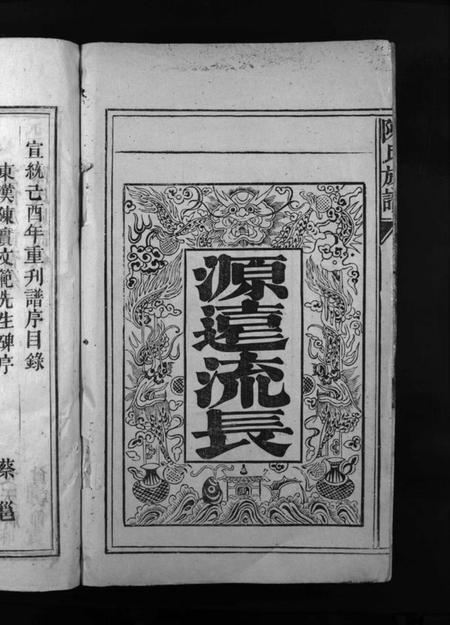 陳氏族譜
源遠流長
宣統己酉年重刊譜序目錄
東漢陳實文範先生碑序
蔡邕